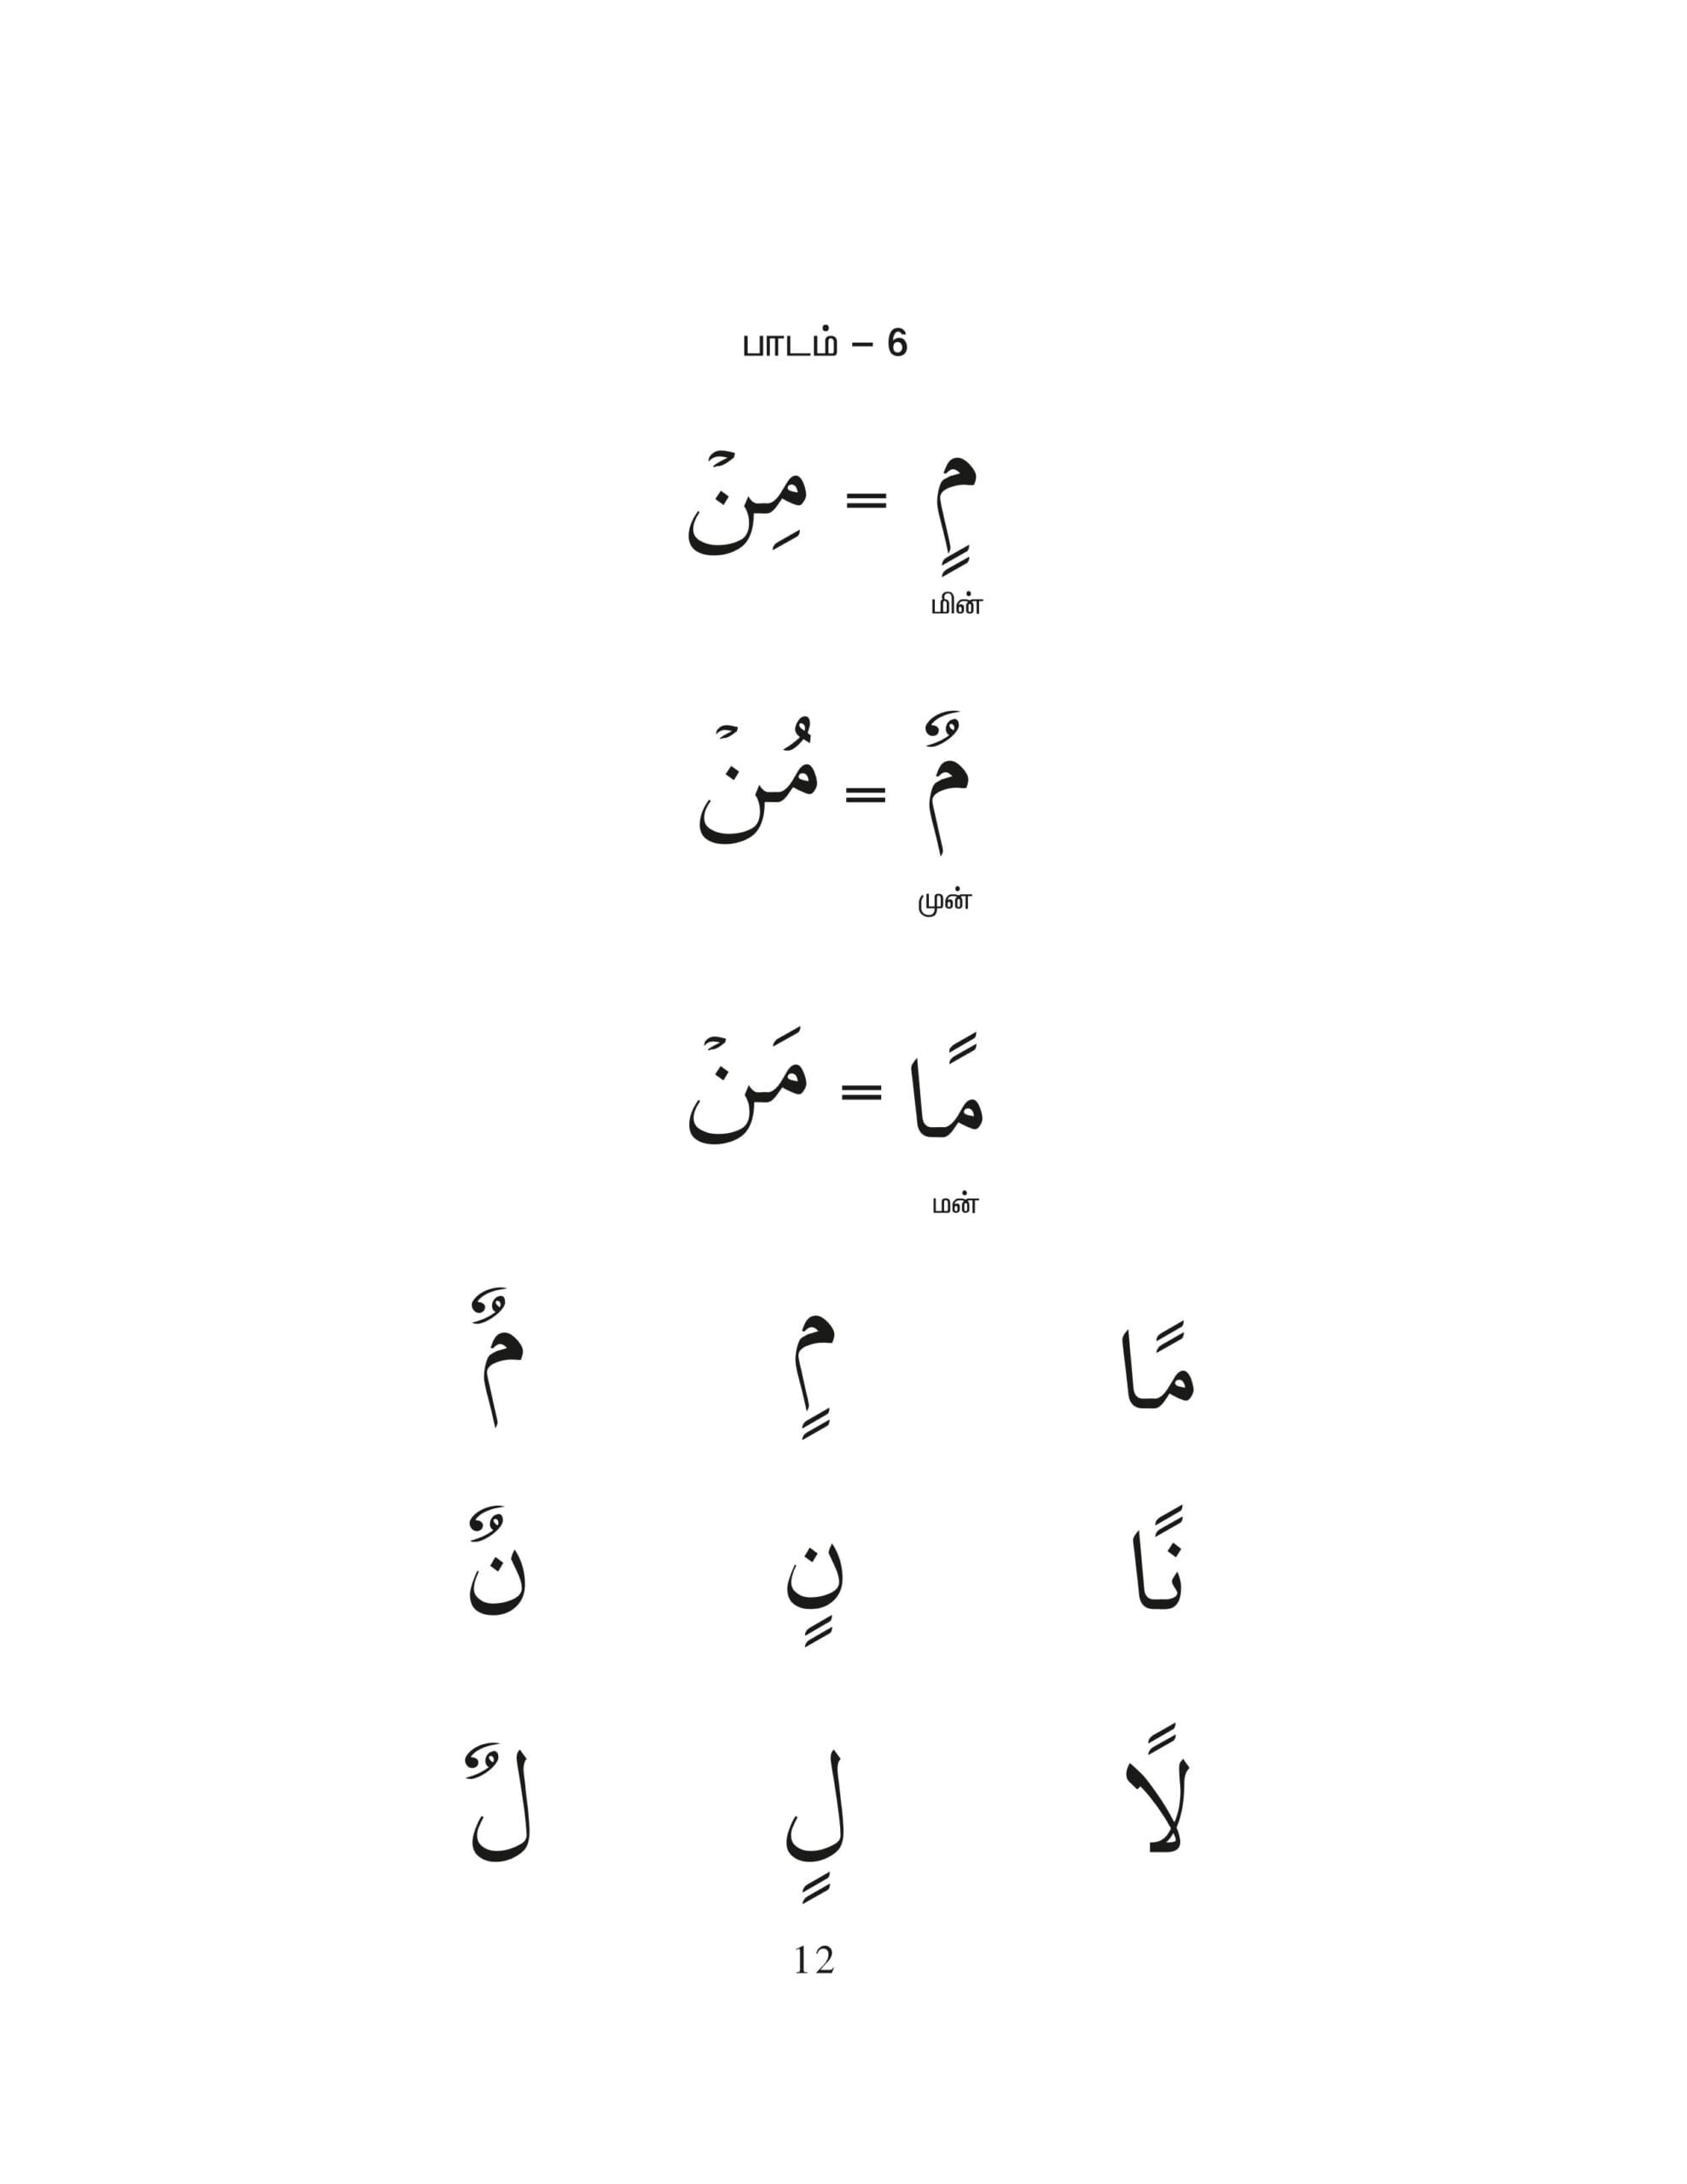 பாடம் – 6
مٍ = مِنْ
மின்
مٌ = مُنْ
முன்
مًا = مَنْ
மன்
مًا مٍ مٌ
نًا نٍ نٌ
لًا لٍ لٌ
12